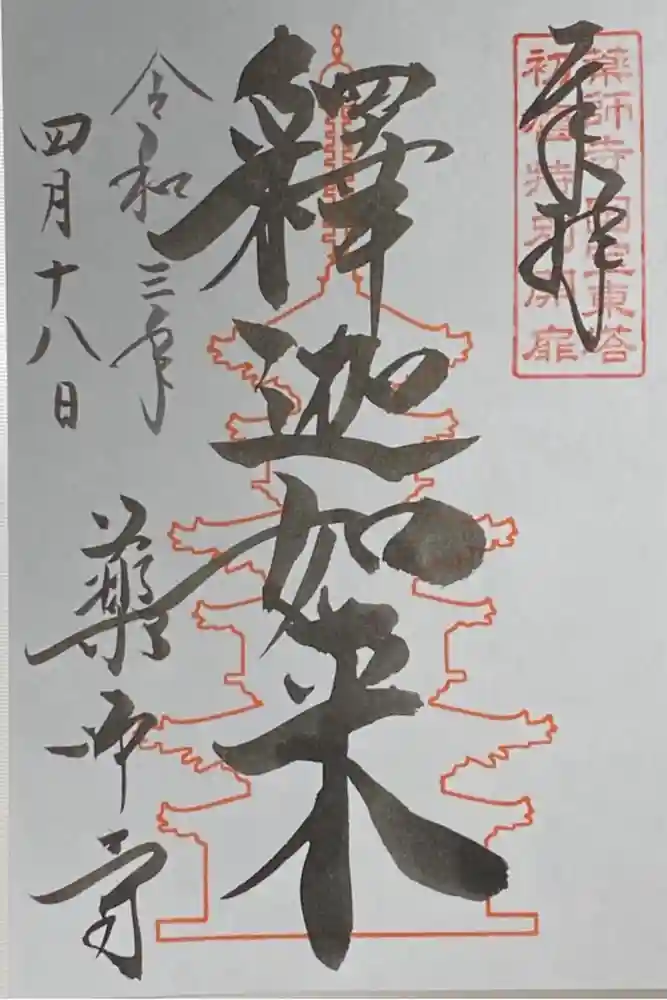 奉拝
薬師寺 国宝東塔
初層特別開扉
釋迦如来
令和三年
四月十八日
薬師寺